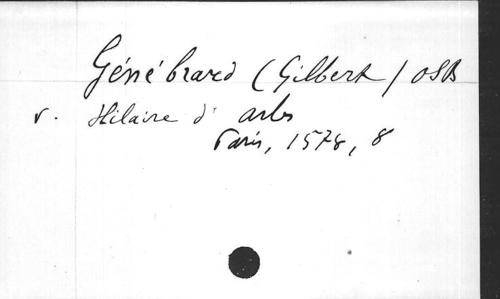 Génébrard (Gilbert) OSB
v. Hilaire d'Arles
Paris, 1578, 8